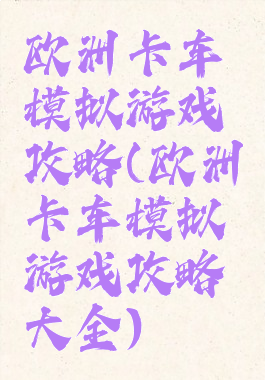 欧洲卡车
模拟游戏
攻略(欧洲
卡车模拟
游戏攻略
大全)